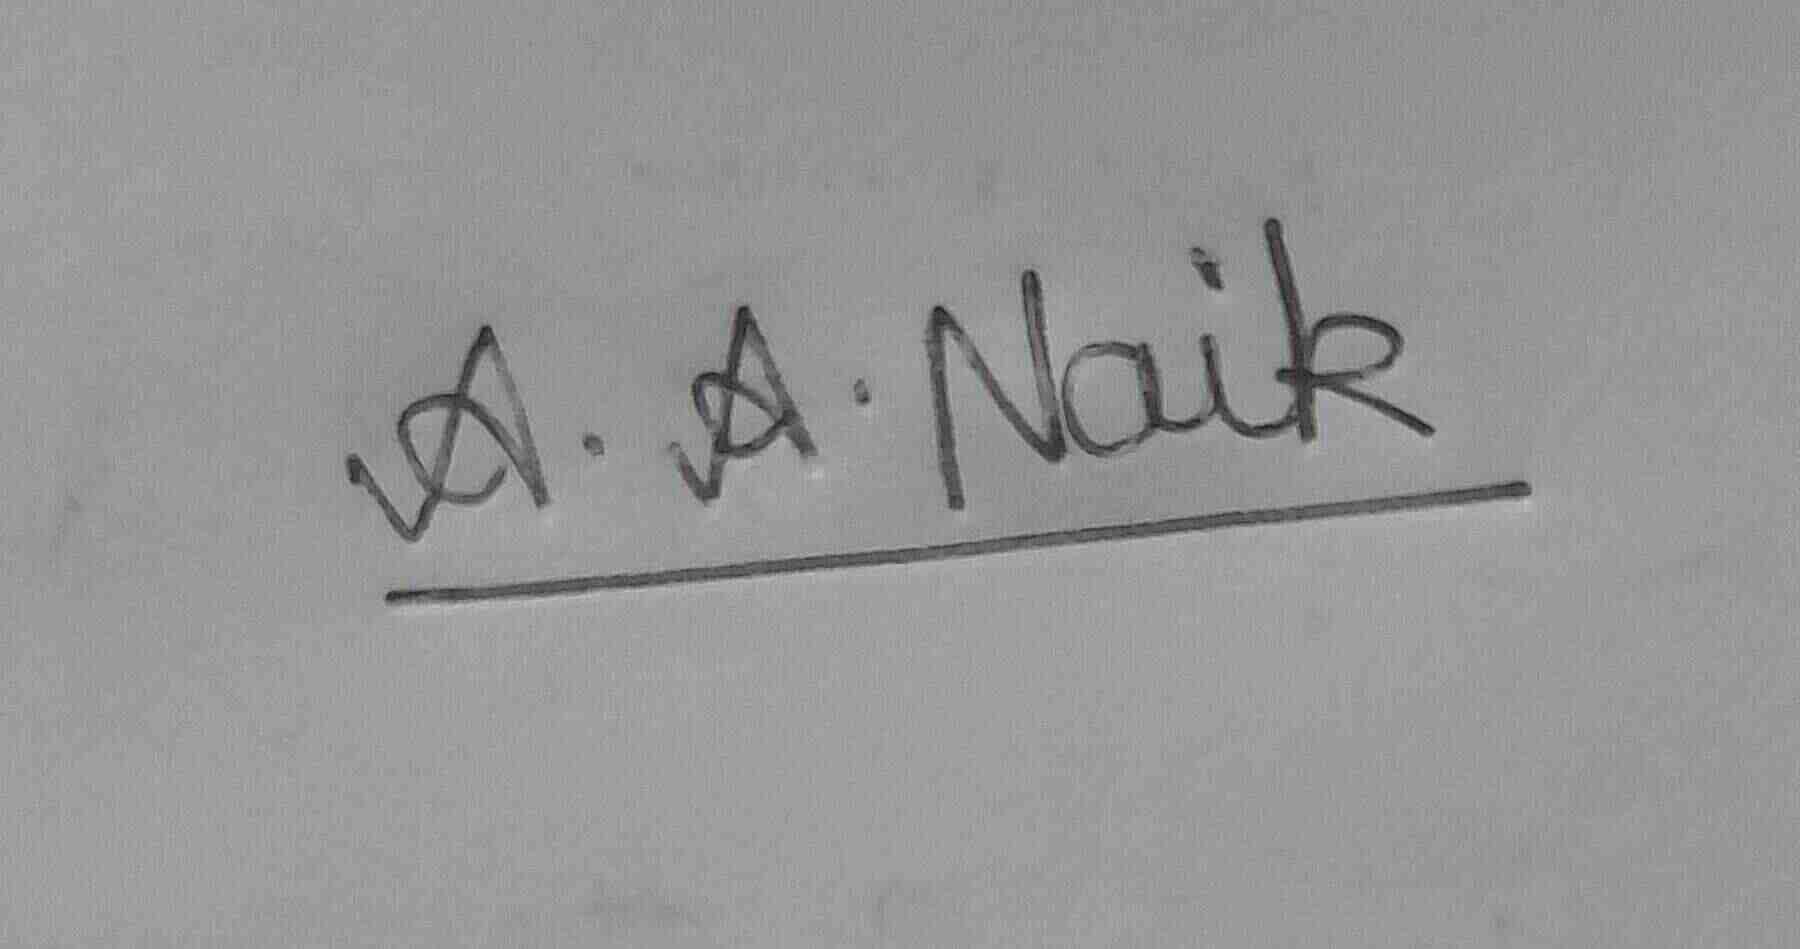 A. A. Naik